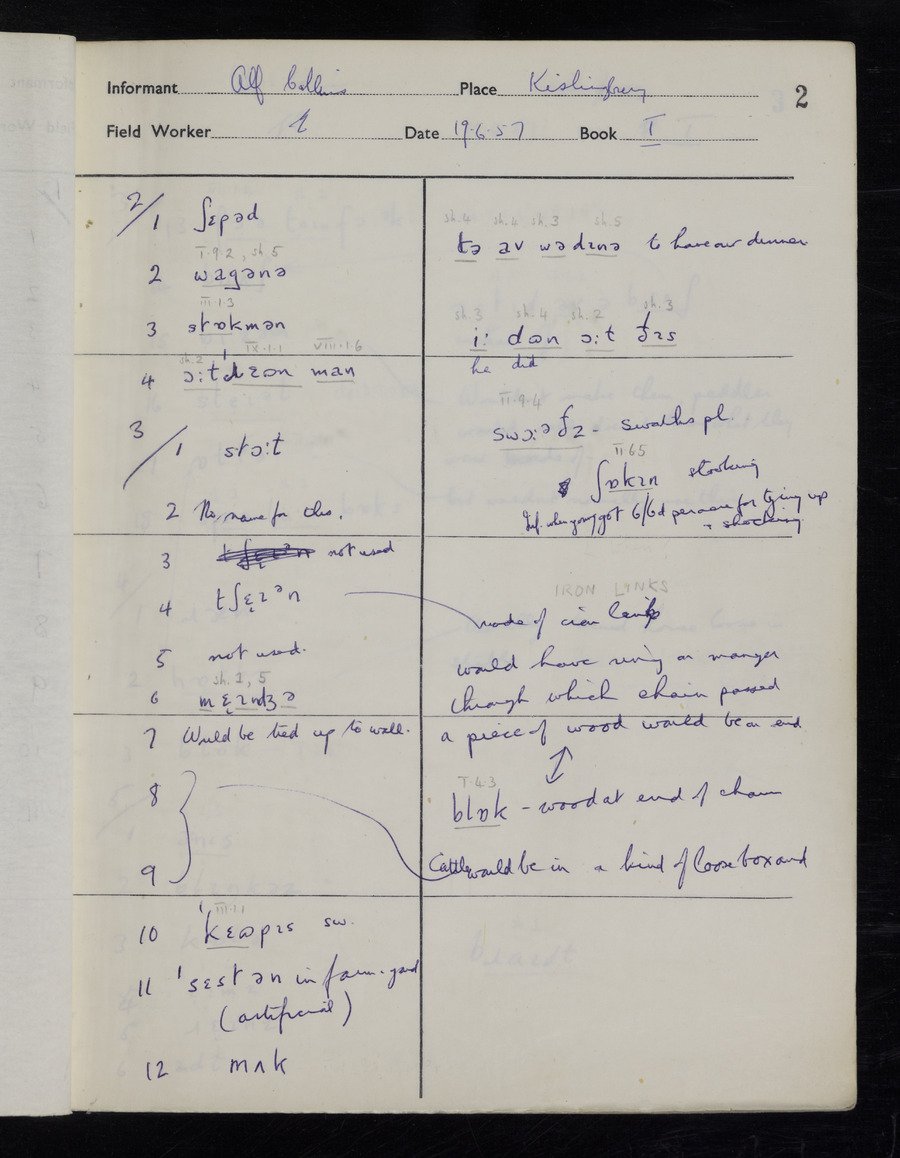 Informant Alf Collins Place Kislingbury 2
Field Worker Date 19.6.57 Book I
2/1 ʃɛpəd
I·9 2, sh 5
2 wagənə
III·1 3
3 stɒkmən
sh.2 IX·1·1 VIII·1·6
4 man
3/1 stɔ:t
2 No name for this.
3 not used
4 tʃɛ̨ɪᵊn
5 not used.
sh. 1, 5
6 mɛ̨ɪndʒə
7 Would be tied up to wall.
8
9
III·1·1
10 ˈkɛʊpɪs sw.
11 ˈsɛstən in farm-yard
(artificial)
12 mʌk
sh.4 sh.4 sh.3 sh.5
tə av wə dɪnə to have our dinner
sh.3 sh.4 sh.2 sh.3
i: dʊn ɔ:t ðɪs
he did
II·9·4
swɔ:ᵊðz - swaths pl.
II 6 5
ʃɒkɪn stooking
Inf. when young got 6/6d per acre for tying up
+ shocking
IRON LINKS
made of iron links
would have ring on manger
through which chain passed
a piece of wood would be on end
↕
I·4·3
blɒk - wood at end of chain
Cattle would be in a kind of loose box and